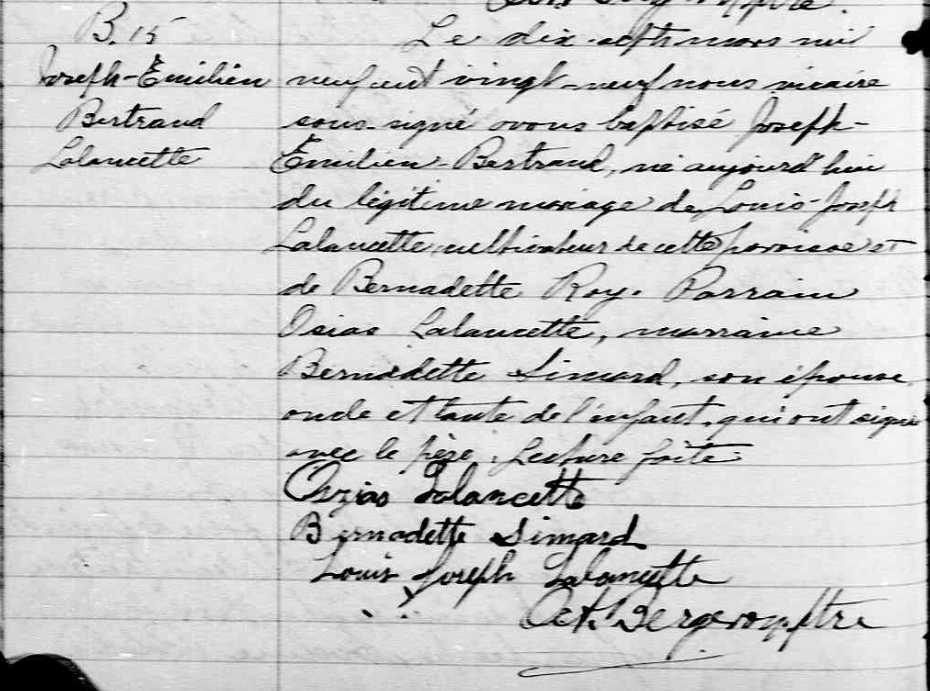 B. 15
Joseph-Emilien
Bertrand
Lalancette
Le dix-sept mars mil
neuf cent vingt-neuf nous vicaire
sous-signé avons baptisé Joseph-
Emilien-Bertrand, né aujourd'hui
du légitime mariage de Louis-Joseph
Lalancette, cultivateur de cette paroisse et
de Bernadette Roy. Parrain
Osias Lalancette, marraine
Bernadette Simard, son épouse,
oncle et tante de l'enfant, qui ont signé
avec le père. Lecture faite.
Ozias Lalancette
Bernadette Simard
Louis Joseph Lalancette
Oct. Bergeron, ptre